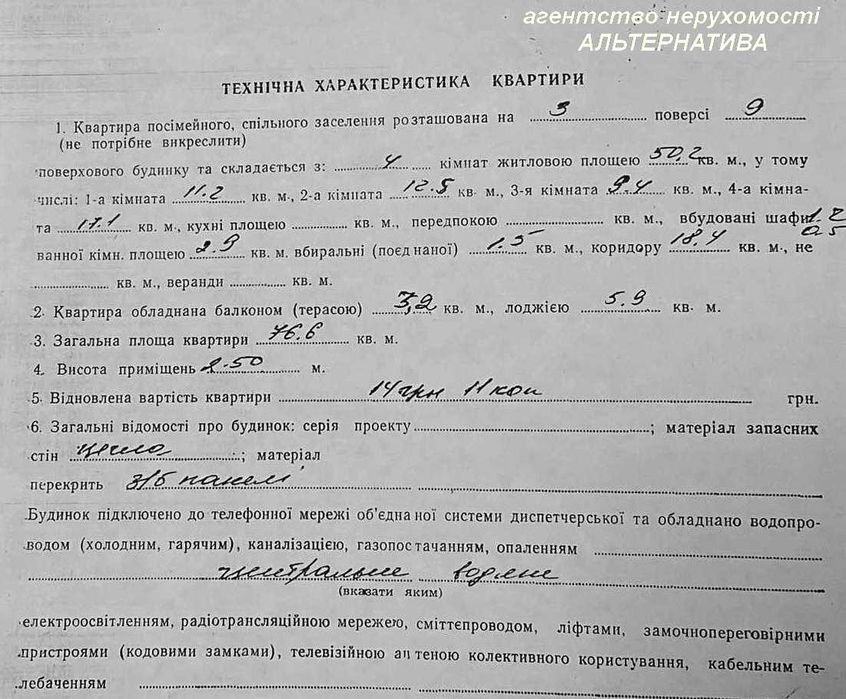 агентство нерухомості
АЛЬТЕРНАТИВА
ТЕХНІЧНА ХАРАКТЕРИСТИКА КВАРТИРИ
1. Квартира посімейного, спільного заселення розташована на 3 поверсі 9
(не потрібне викреслити)
поверхового будинку та складається з: 4 кімнат житловою площею 50,2 кв. м., у тому
числі: 1-а кімната 11.2 кв. м., 2-а кімната 12.5 кв. м., 3-я кімната 9.4 кв. м., 4-а кімна-
та 17.1 кв. м., кухні площею кв. м., передпокою кв. м., вбудовані шафи 1.2
0.5
ванної кімн. площею 2.9 кв. м. вбиральні (поєднаної) 1.5 кв. м., коридору 18.4 кв. м., не
кв. м., веранди кв. м.
2. Квартира обладнана балконом (терасою) 3,2 кв. м., лоджією 5.9 кв. м.
3. Загальна площа квартири 76.6 кв. м.
4. Висота приміщень 2.50 м.
5. Відновлена вартість квартири 14 грн 11 коп грн.
6. Загальні відомості про будинок: серія проекту ; матеріал запасних
стін цегла ; матеріал
перекрить з/б панелі
Будинок підключено до телефонної мережі об'єднаної системи диспетчерської та обладнано водопро-
водом (холодним, гарячим), каналізацією, газопостачанням, опаленням
центральне водяне
(вказати яким)
електроосвітленням, радіотрансляційною мережею, сміттєпроводом, ліфтами, замочнопереговірними
пристроями (кодовими замками), телевізійною антеною колективного користування, кабельним те-
лебаченням